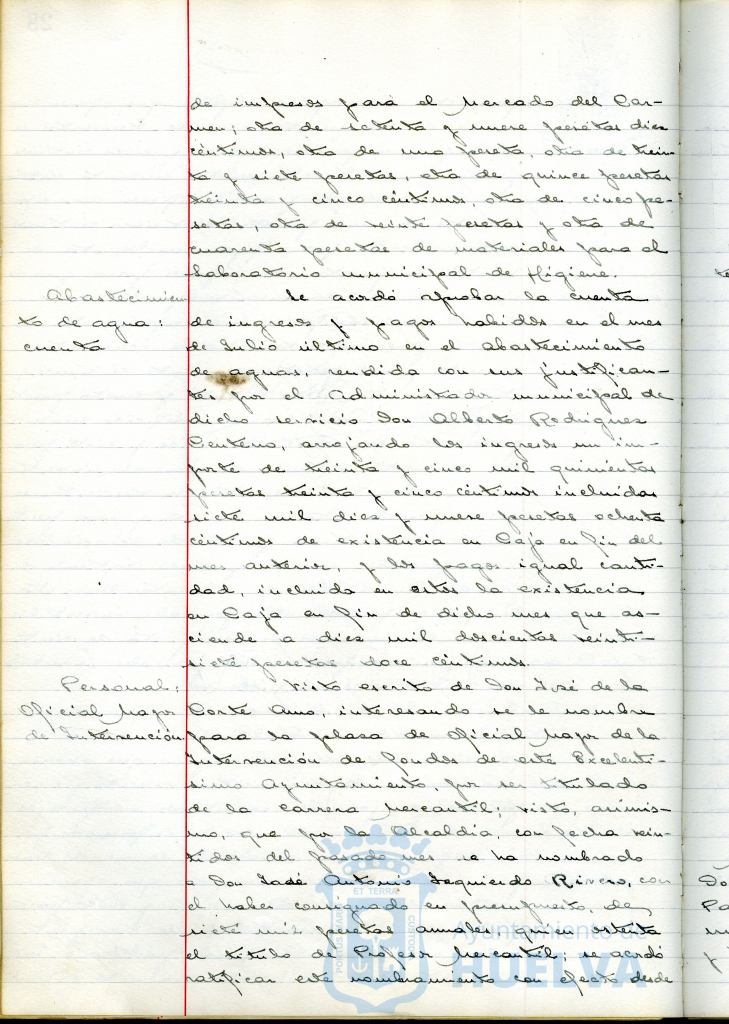 de impresos para el Mercado del Car-
men; otra de setenta y nueve pesetas diez
céntimos, otra de una peseta, otra de trein-
ta y siete pesetas, otra de quince pesetas
treinta y cinco céntimos, otra de cinco pe-
setas, otra de veinte pesetas y otra de
cuarenta pesetas de materiales para el
Laboratorio municipal de Higiene.
Abastecimien
to de agua:
cuenta
Se acordó aprobar la cuenta
de ingresos y pagos habidos en el mes
de Julio último en el abastecimiento
de aguas, rendida con sus justifican-
tes por el Administrador municipal de
dicho servicio Don Alberto Rodriguez
Centeno, arrojando los ingresos un im-
porte de treinta y cinco mil quinientas
pesetas treinta y cinco céntimos incluidas
siete mil diez y nueve pesetas ochenta
céntimos de existencia en Caja en fin del
mes anterior, y los pagos igual canti-
dad, incluida en estos la existencia
en Caja en fin de dicho mes que as-
ciende a diez mil doscientas veinti-
siete pesetas doce céntimos.
Personal:
Oficial Mayor
de Intervención
Visto escrito de Don José de la
Corte Amo, interesando se le nombre
para la plaza de Oficial Mayor de la
Intervención de fondos de este Excelentí-
simo Ayuntamiento, por ser titulado
de la carrera Mercantil; visto, asimis-
mo, que por la Alcaldía, con fecha vein-
tidos del pasado mes se ha nombrado
a Don José Antonio Izquierdo Rivero, con
el haber consignado en presupuesto, de
siete mil pesetas anuales quien ostenta
el título de Profesor Mercantil; se acordó
ratificar este nombramiento con efecto desde
Ayuntamiento de
HUELVA
PORTUS MARIS
ET TERRÆ
CUSTODIA